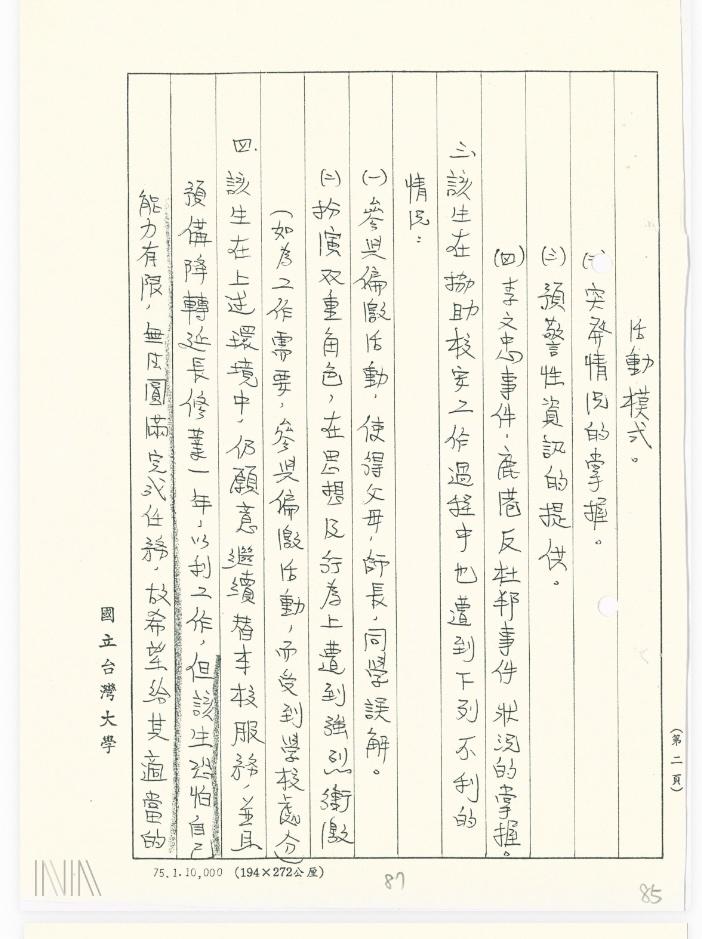 (第二頁)
活動模式。
(二)突發情況的掌握。
(三)預警性資訊的提供。
(四)李文忠事件,鹿港反杜邦事件狀況的掌握。
三、該生在協助校安工作過程中也遭到下列不利的
情況:
(一)參與偏激活動,使得父母,師長,同學誤解。
(二)扮演双重角色,在思想及行為上遭到強烈衝激
(如為工作需要,參與偏激活動,而受到學校處分)
四.該生在上述環境中,仍願意繼續替本校服務,並且
預備降轉延長修業一年,以利工作,但該生恐怕自己
能力有限,無法圓滿完成任務,故希望給其適當的
國立台灣大學
75.1.10,000 (194×272公厘)
87
85